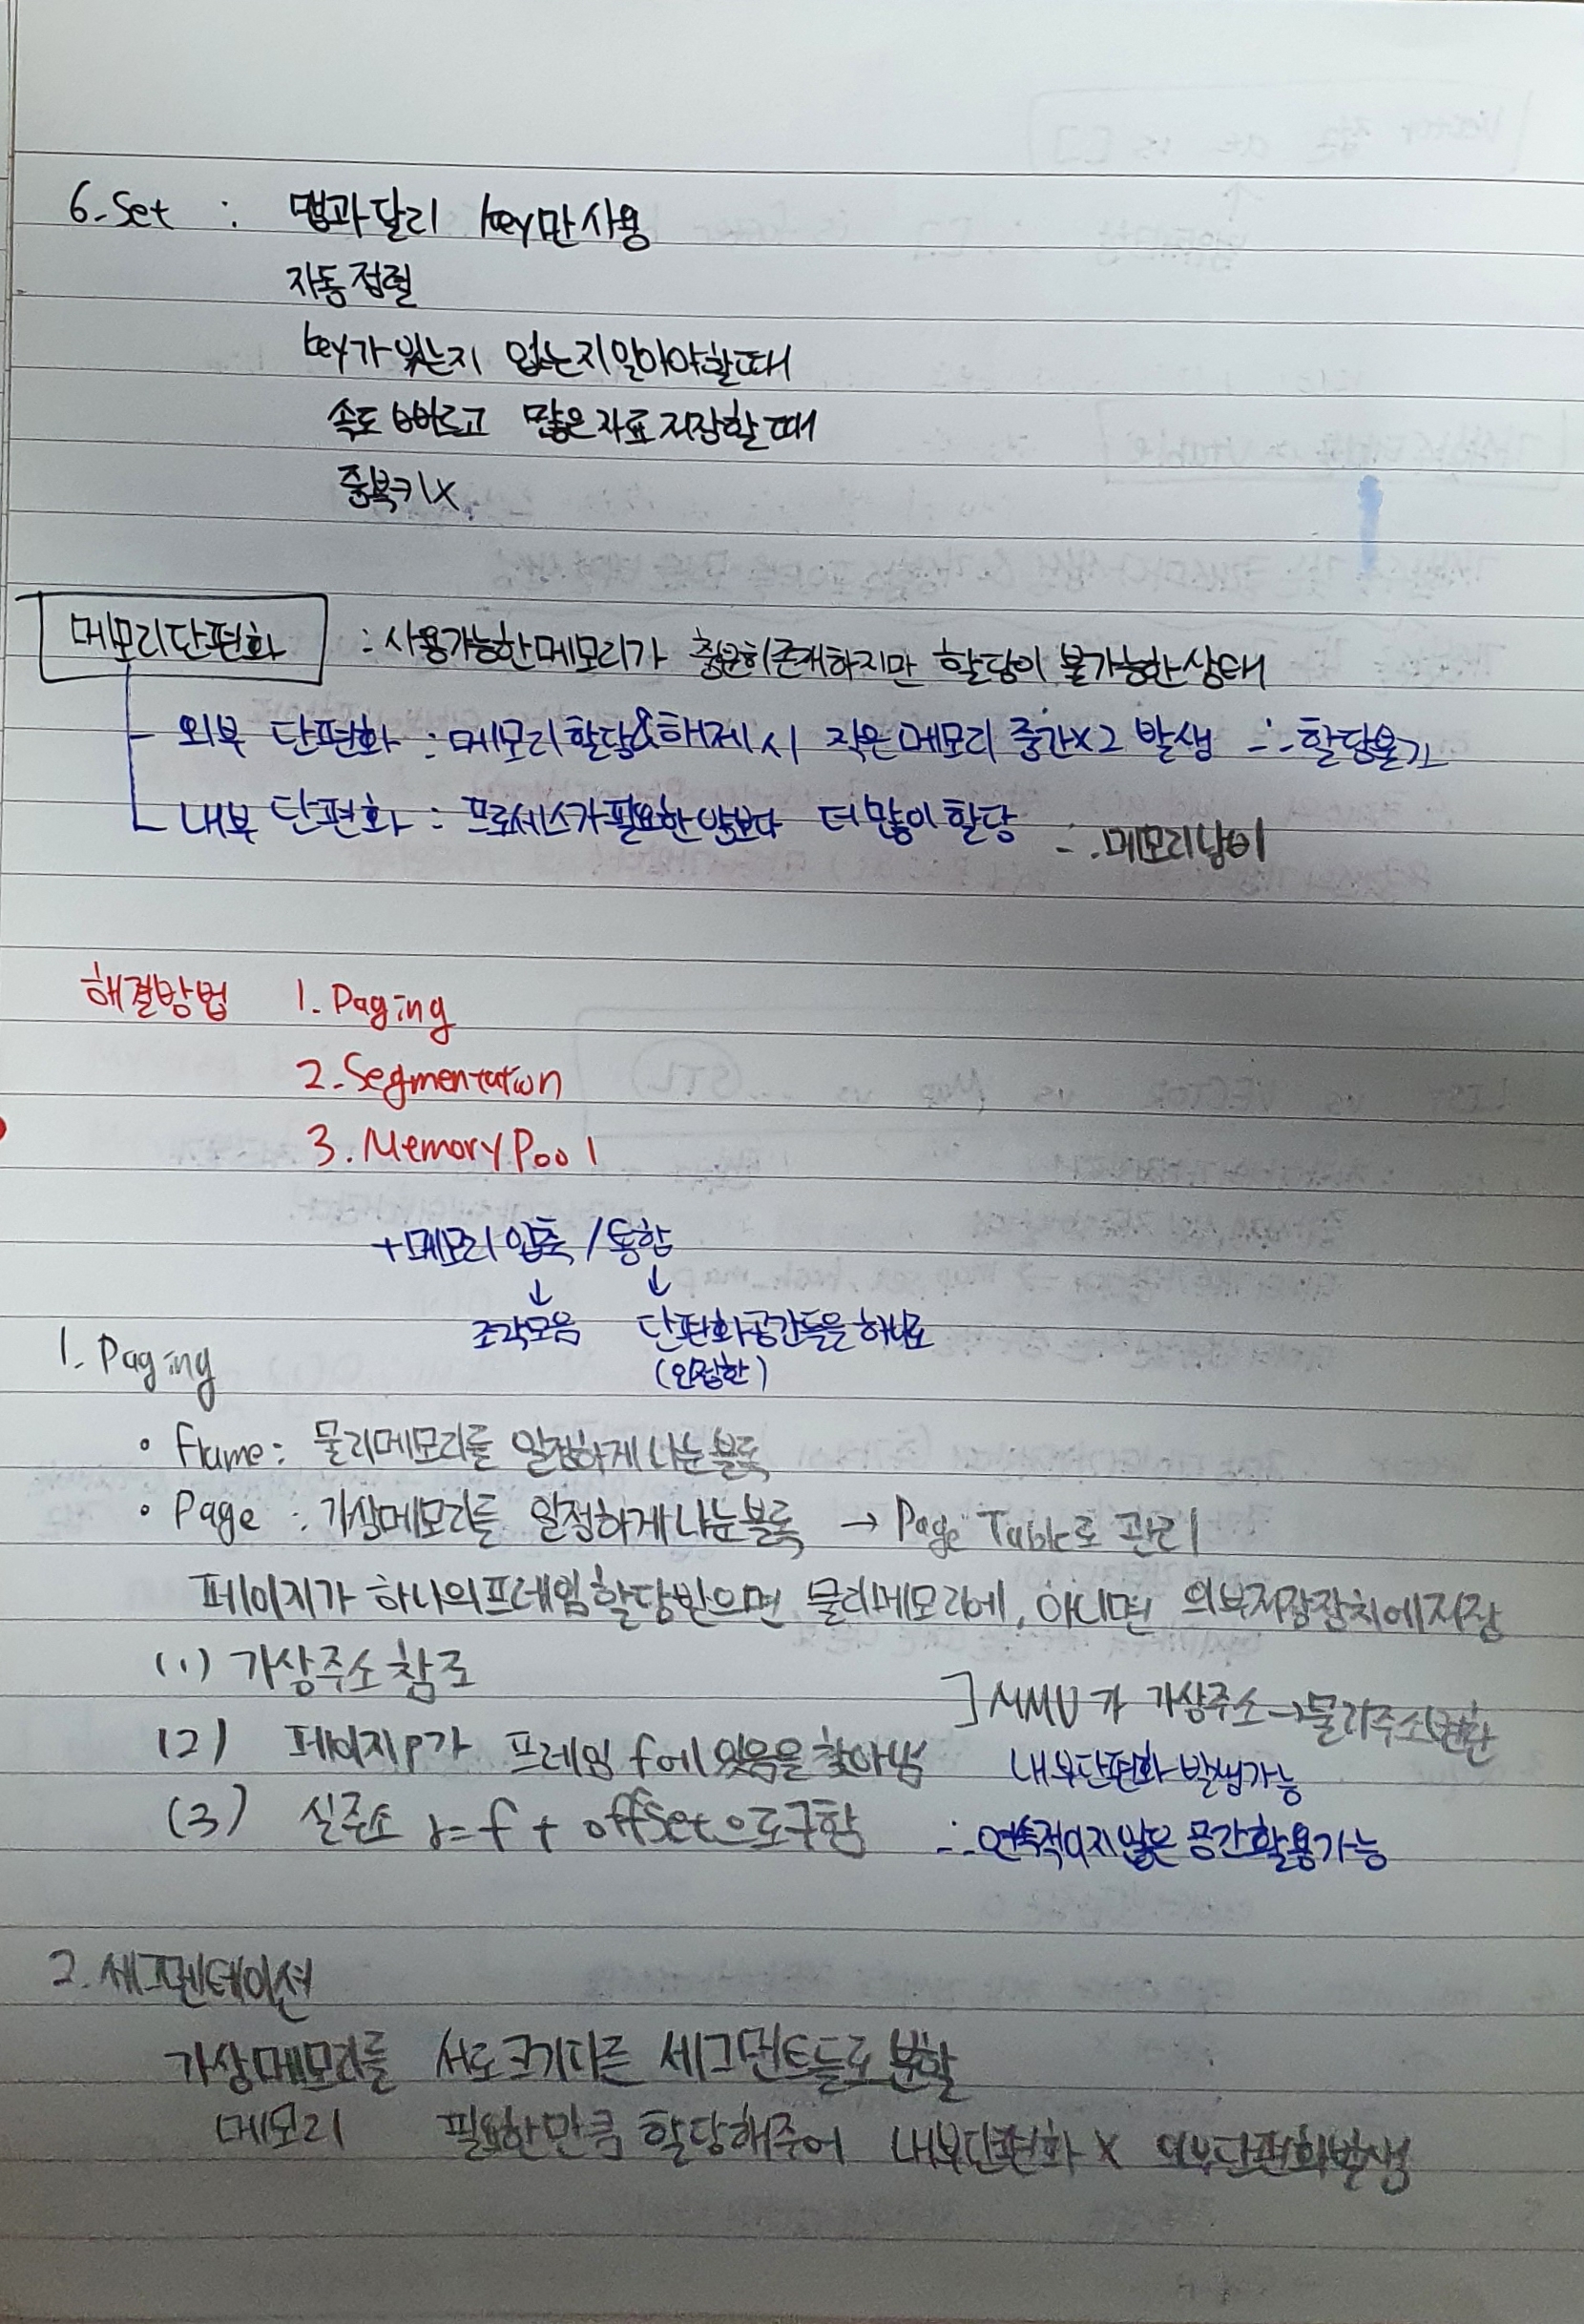 6. Set : 맵과 달리 key만 사용
자동정렬
key가 있는지 없는지 알아야할때
속도 빠르고 많은 자료 저장할 때
중복키 X
메모리 단편화 : 사용가능한 메모리가 충분히 존재하지만 할당이 불가능한 상태
외부 단편화 : 메모리 할당&해제 시 작은 메모리 중간x2 발생 ∴ 할당불가
내부 단편화 : 프로세스가 필요한 양보다 더 많이 할당 ∴ 메모리 낭비
해결방법 1. Paging
2. Segmentation
3. Memory Pool
+메모리 압축 / 통합
↓ ↓
조각모음 단편화 공간들을 하나로
(인접한)
1. Paging
• Frame : 물리메모리를 일정하게 나눈 블록
• Page : 가상메모리를 일정하게 나눈 블록 → Page Table로 관리
페이지가 하나의 프레임 할당받으면 물리메모리에, 아니면 외부저장장치에 저장
(1) 가상주소 참조
] MMU가 가상주소→물리주소변환
(2) 페이지 p가 프레임 f에 있음을 찾아냄
내부단편화 발생가능
(3) 실주소 r = f + offset으로 구함
∴ 연속적이지 않은 공간 활용가능
2. 세그멘테이션
가상메모리를 서로 크기다른 세그먼트들로 분할
메모리 필요한만큼 할당해주어 내부단편화 X 외부단편화발생